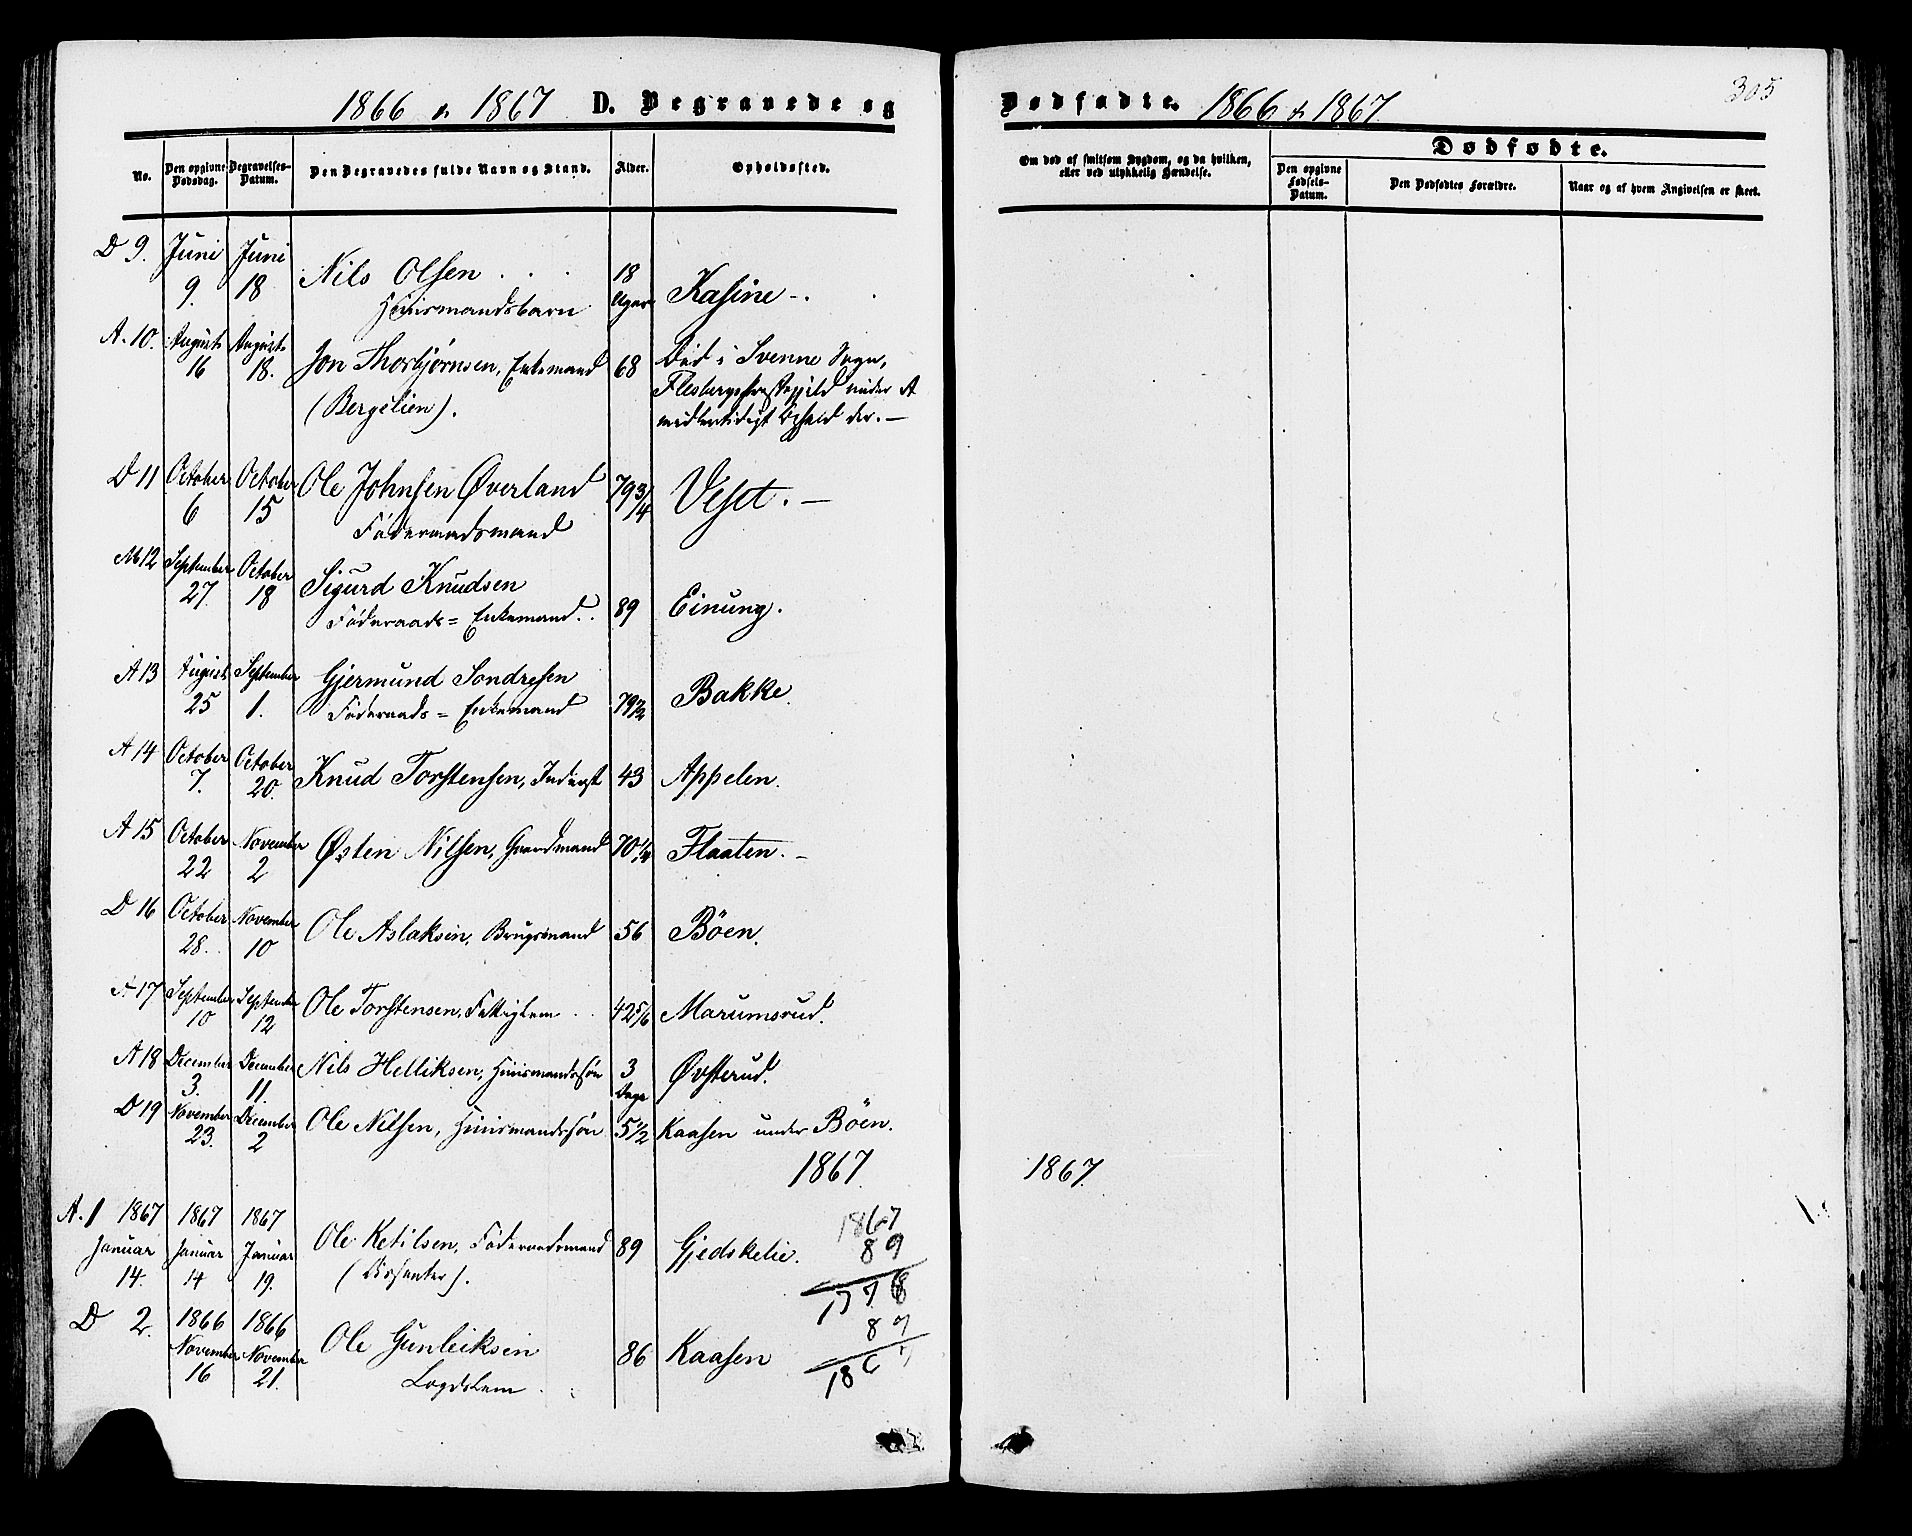 1866 & 1867 D. Begravede og
No.
Den opgivne Dødsdag.
Begravelses-Datum.
Den Begravedes fulde Navn og Stand.
Alder.
Opholdssted.
D 9. Juni 9. Juni 18 Nils Olsen . . . 18 Uger Kasine -.
Huusmandsbarn
A. 10. August 16 August 18. Jon Thorbjørnsen, Enkemand 68 Død i Svenne Sogn,
(Bergelien). Flesbergs Præstegjeld under
midlertidigt Ophold der. —
D 11 October 6 October 15 Ole Johnsen Øverland 79 3/4 Veset. —
Føderaadsmand
12 September 27. October 18 Sigurd Knudsen
Føderaads = Enkemand. . 89 Einung.
A 13 August 25 September 1. Gjermund Sondresen
Føderaads = Enkemand 79 1/2 Bakke.
A 14 October 7. October 20. Knud Torstensen, Inderst 43 Appelen.
A 15 October 22 November 2 Østen Nilsen, Gaardmand 70 1/4 Flaaten. —
D 16 October 28. November 10 Ole Aslaksen, Brugsmand 56 Böen.
A 17 September 10 September 12 Ole Torstensen, Fattiglem . . 42 5/6 Marumsrud.
A 18 December 3. December 11. Nils Helliksen, Huusmandssøn 3 Dage Øvsterud.
D 19 November 23. December 2 Ole Nilsen, Huusmandssøn 5 1/2 Kaasen under Böen.
1867.
A. 1 1867 Januar 14. 1867 Januar 14 1867 Januar 19. Ole Ketilsen, Føderaadsmand 89 Gjedskelie.
D 2. 1866 November 16 1866 November 21. Ole Gunleiksen 86 Kaasen
Lægdslem
1867
89
1778
89
Dødfødte. 1866 & 1867.
305
Om død af smitsom Sygdom, og da hvilken,
eller ved ulykkelig Hændelse.
Dødfødte.
Den opgivne Fødsels-Datum.
Den Dødfødtes Forældre.
Naar og af hvem Angivelsen er skeet.
1867.